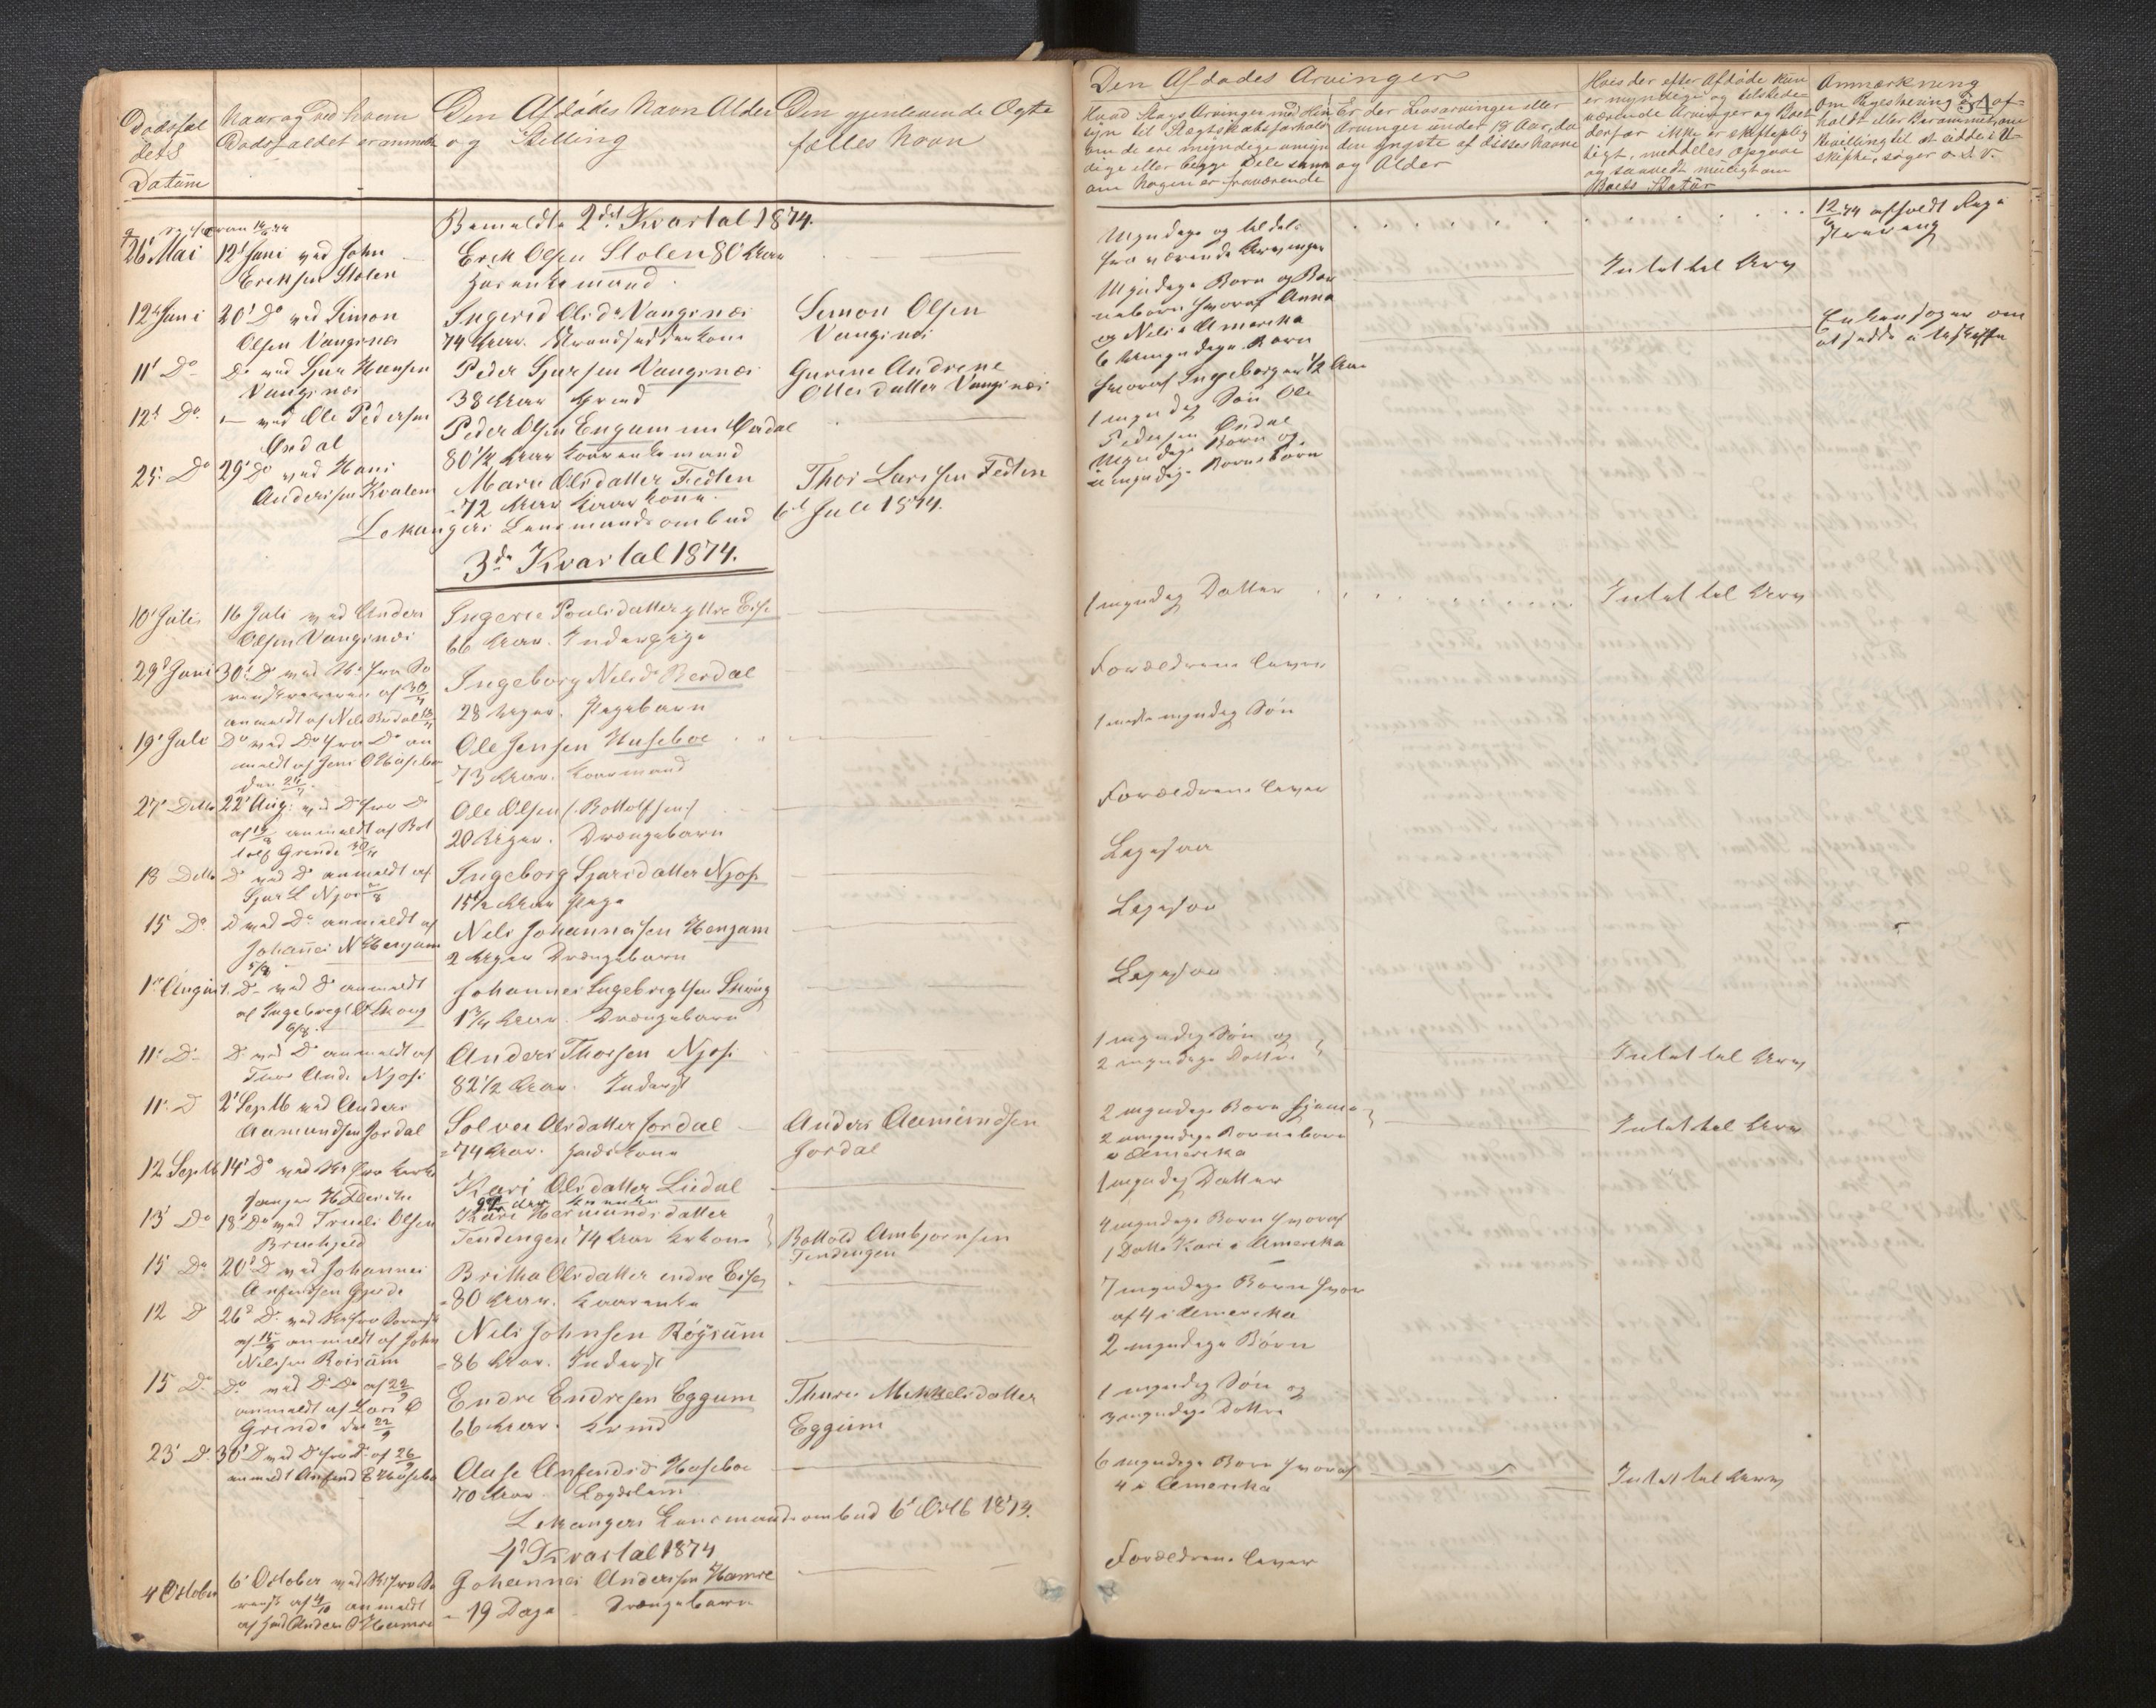 Dødsfal
dets
Datum
Naar og ved hvem
Dødsfaldet er anmeldt
Den Afdødes Navn Alder
og Stilling
Den gjenlevende Ægte
fælles Navn
Anmeldte 2det Kvartal 1874.
26 Mai
12' Juni ved John
Eriksen Stolen
Erik Olsen Stolen 80 Aar
Huusenkemand
12' Juni
20' Do ved Simon
Olsen Vangsnæs
Ingerid Olsdr Vangsnæs
74 Aar. Strandsidderkone
Simon Olsen
Vangsnæs
11' Do
Do ved Sjur Hansen
Vangsnæs
Peder Sjursen Vangsnæs
38 Aar Gmd
Gurine Andrene
Ottersdatter Vangsnæs
12' Do
— ved Ole Pedersen
Ördal
Peder Olsen Engum
80½ Aar Kaarenkemand
25' Do
29' Do ved Hans
Anderssen Kvalem
Mari Olsdatter Fedten
72 Aar Kaarkone
Thor Larssen Fedten
Lekangers Lensmandsombud 6' Juli 1874.
3de Kvartal 1874.
10' Juli
16 Juli ved Anders
Olsen Vangsnæs
Ingerie Poulsdatter yttre Eise
66 Aar. Inderpige
29' Juni
30' Do ved
anmeldt af Nils Berdal
Ingeborg Nilsdr Berdal
28 Uger. Pigebarn
19' Juli
Do ved Do fra Do an
meldt af Jens O Huseboe
den
Ole Jensen Huseboe
73 Aar. Kaarmand
27' Ditto
22' Aug: ved Do fra Do
af anmeldt af Bot
tolf Grinde
Ole Olsen (Bottolfsen)
20 Uger. Drengebarn
18 Ditto
Do ved Do anmeldt af
Sjur L Njøs
Ingeborg Sjursdatter Njøs
15½ Aar Pige
15 Do
Do ved Do anmeldt af
Johanes N Henjum
5/8
Nels Johannessen Henjum
2 Uger Drengebarn
1' August
Do ved Do anmeldt
af Ingebregt O Skoug
6/8
Johannes Ingebregtsen Skoug
1¾ Aar. Drengebarn
11' Do
Do ved Do anmeldt af
Thor Ands Njøs
Anders Thorsen Njøs
82½ Aar. Inderst
11' D
2' Septb ved Anders
Aamundsen Jordal
Solvei Olsdatter Jordal
74 Aar. Huuskone
Anders Aamundsen
Jordal
12 Septb
14' Do ved
Kari Olsdatter Liedal
13' Do
18' Do ved Truels Olsen
Kari Hermundsdatter
Tendingen 74 Aar
Bottold Ambjornsen
Tendingen
15' Do
20' D ved Johannes
Anfindsen Gjerde
Britha Olsdatter indre Eise
80 Aar. Kaarenke
12 D
26' D. ved
anmeldt af John
Nilssen Roisum
Nils Johnsen Röysum
86 Aar. Inderst
15 D
Do ved Do Do af 22/9
anmeldt af Lars Ø
Grinde den 22/9
Endre Endresen Eggum
66 Aar. Grmd
Thuri Mikkelsdatter
Eggum
23' D.
30' D ved D fra D. af 26/9
anmeldt Anfind E Huseboe
Aase Anfindsd Huseboe
70 Aar Lægdslem
Lekangers Lensmandsombud 6' Octb 1874.
4' Kvartal 1874
4 October
6' October ved
af 4/10 anmeldt
af Anders O Hamre
Johannes Anderssen Hamre
19 Dage Drengebarn
Den Afdødes Arvinger
Hvad Slags Arvinger med Hen
syn til Slægtskabsforhold
om de ere myndige umyn
dige eller begge Dele samt
om Nogen er fraværende
Er der Livsarvinger eller
Arvinger under 18 Aar, da
den yngste af disses Navne
og Alder
Hvis der efter Afdøde kun
er myndige og tilstede-
værende Arvinger og Boet
derfor ikke er skiftepleg
tigt, meddeles Opgave
og saavidt muligt om
Boets Status
Anmærkning
om Registrering er af-
holdt eller Berammet, om
Bevilling til at sidde i U-
skifte, søges o. s. v.
54
Myndige og tildels
fraværende Arvinger
12/6 74 afholdt Regi
strering
Myndige Børn og Bør
neborn hvoraf Anna
og Nels i Amerika
Intet til Arv
6 Umyndige Børn
hvoraf Ingeborg er ½ Aar
Enken søger om
at sidde i Uskifte
1 myndig Søn Ole
Pedersen Ördal
Myndige Børn og
umyndige Børnebørn
1 myndig Datter
Intet til Arv
Forældrene lever
1 eneste myndig Søn
Forældrene lever
Ligesaa
Ligesaa
Ligesaa
1 myndig Søn og
2 myndige Døttre
Intet til Arv
2 myndige Børn hjemme
2 umyndige Børnebørn
i Amerika
Intet til Arv
1 myndig Datter
4 myndige Børn hvoraf
1 Datter Kari i Amerika
7 myndige Børn hvor
af 4 i Amerika
2 myndige Børn
1 myndig Søn og
3 myndige Døttre
6 myndige Børn hvoraf
4 i Amerika
Intet til Arv
Forældrene lever